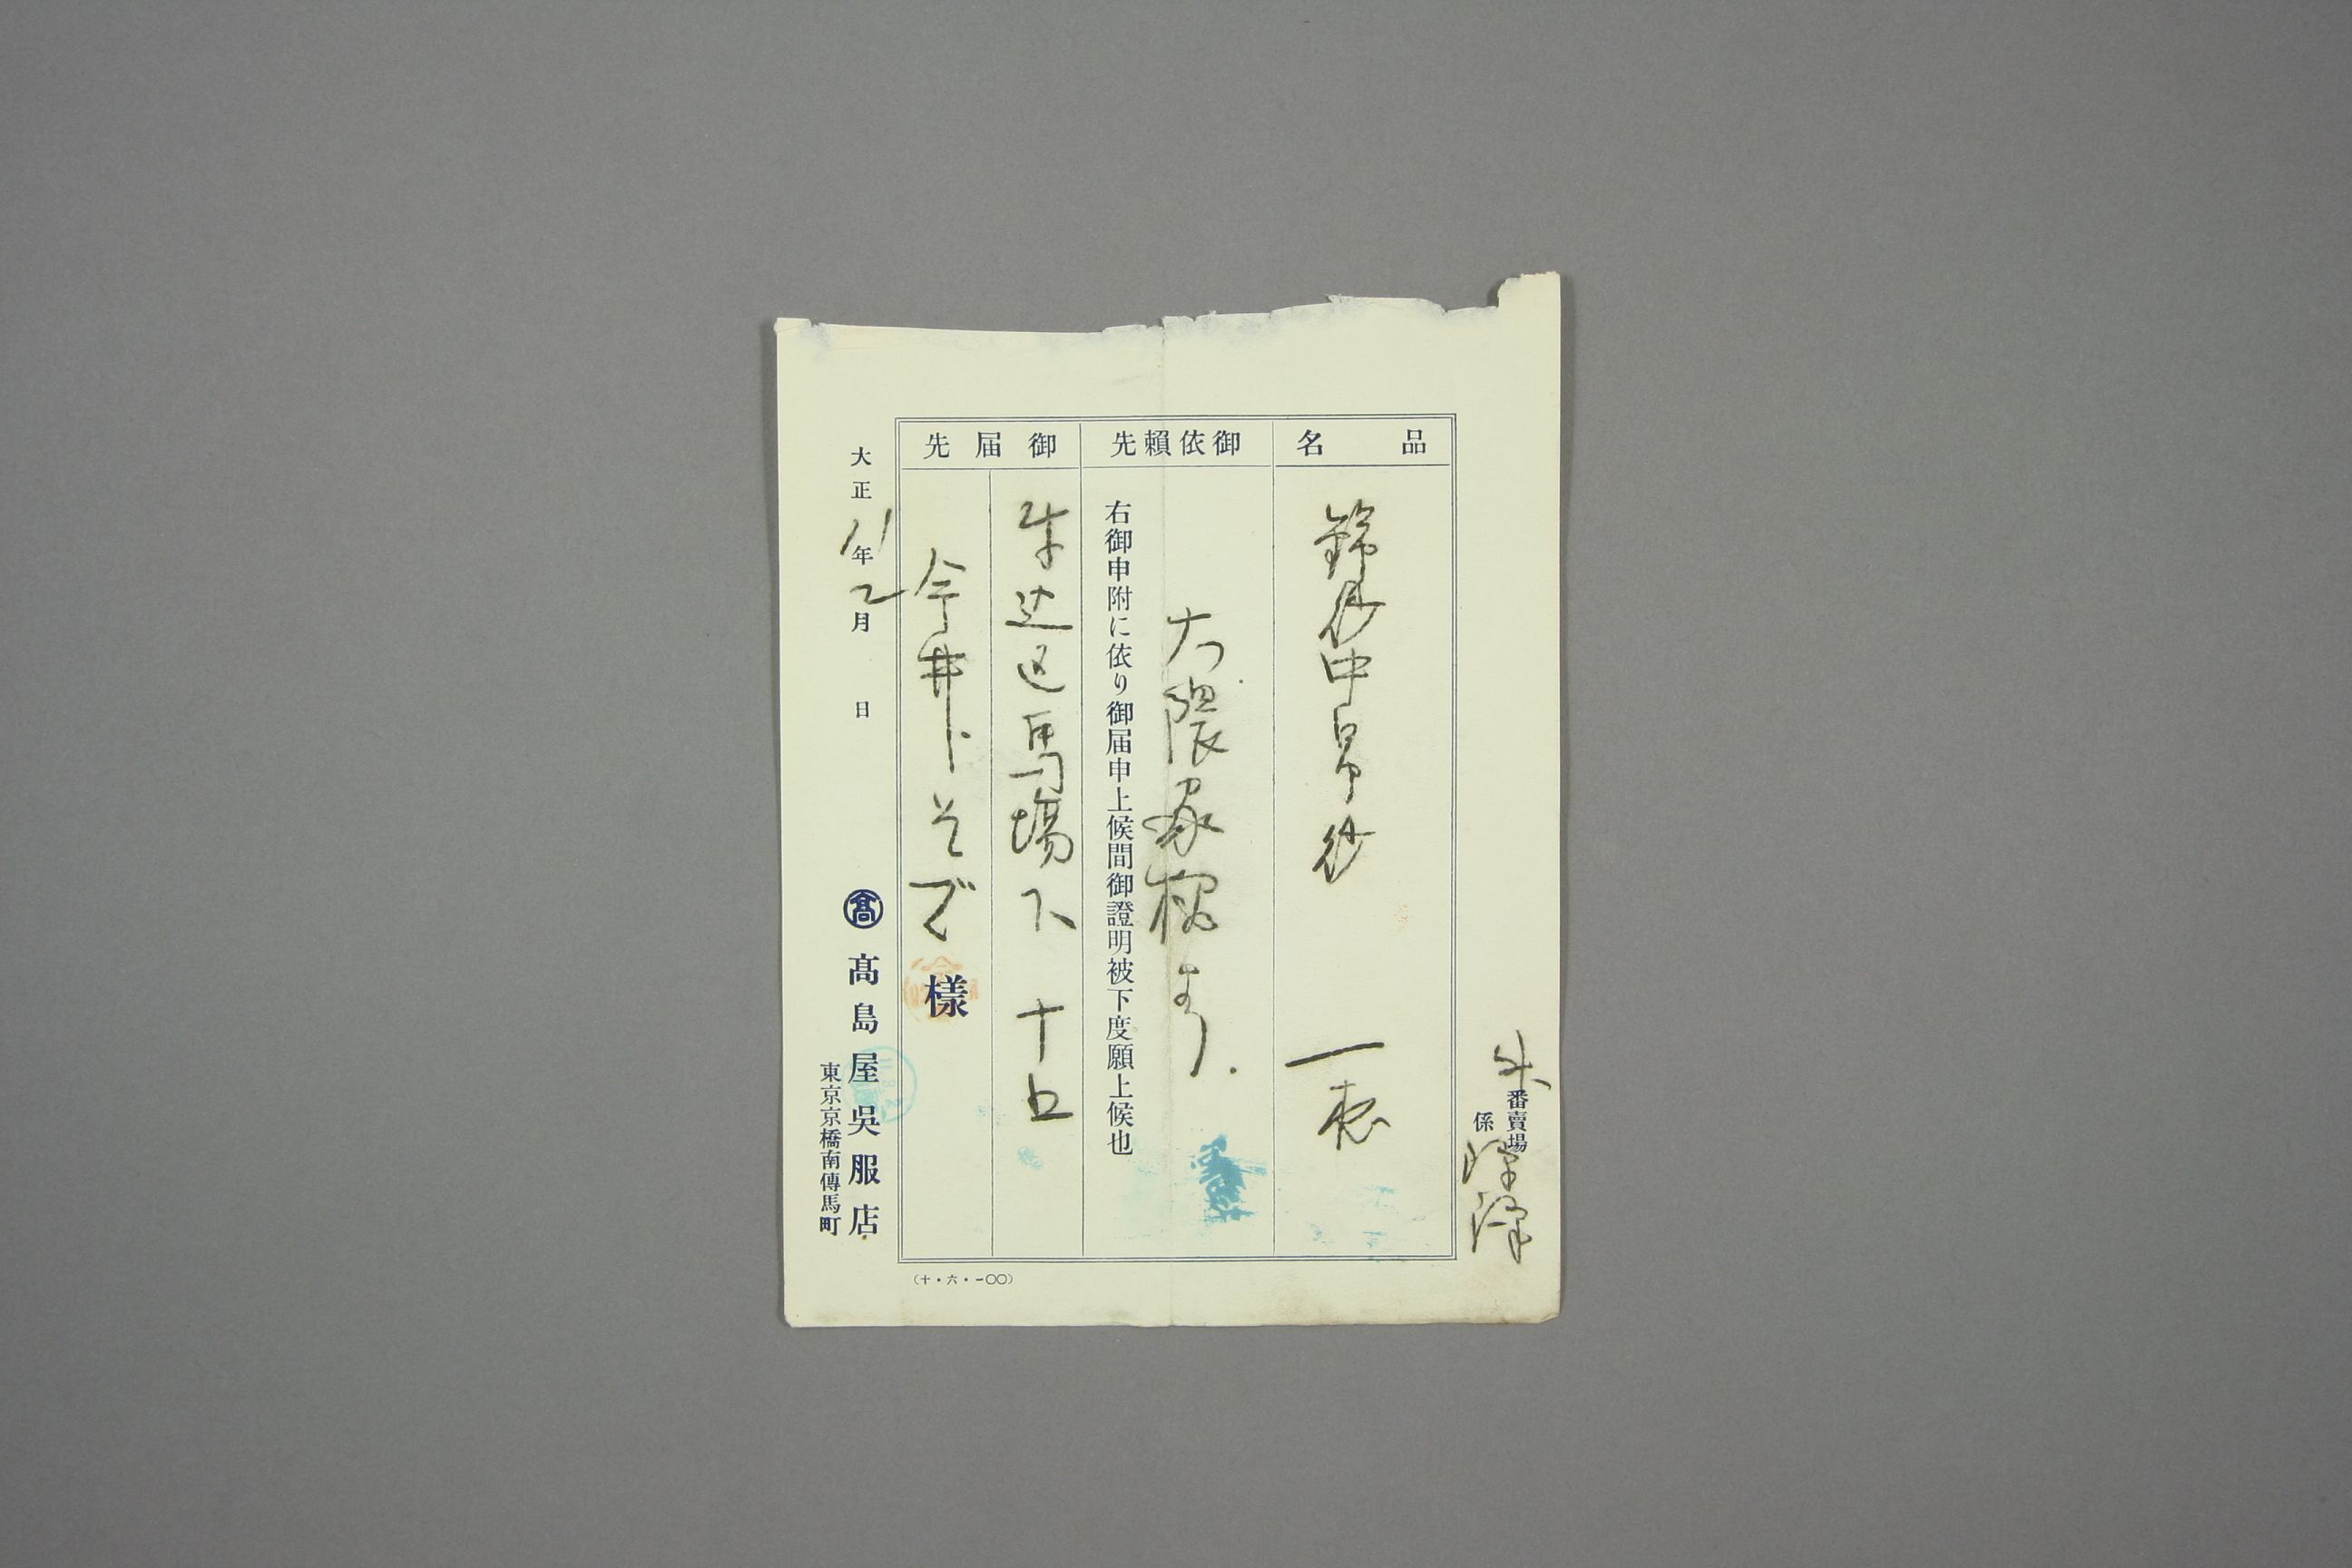 番賣場
係
品名
錦紗中帛紗 一袋
御依賴先
大隈家様より
右御申附に依り御届申上候間御證明被下度願上候也
御届先
牛込区馬場下十五
今井トそで 樣
大正11年2月 日
髙 髙島屋吳服店
東京京橋南傳馬町
(十・六・一〇〇)